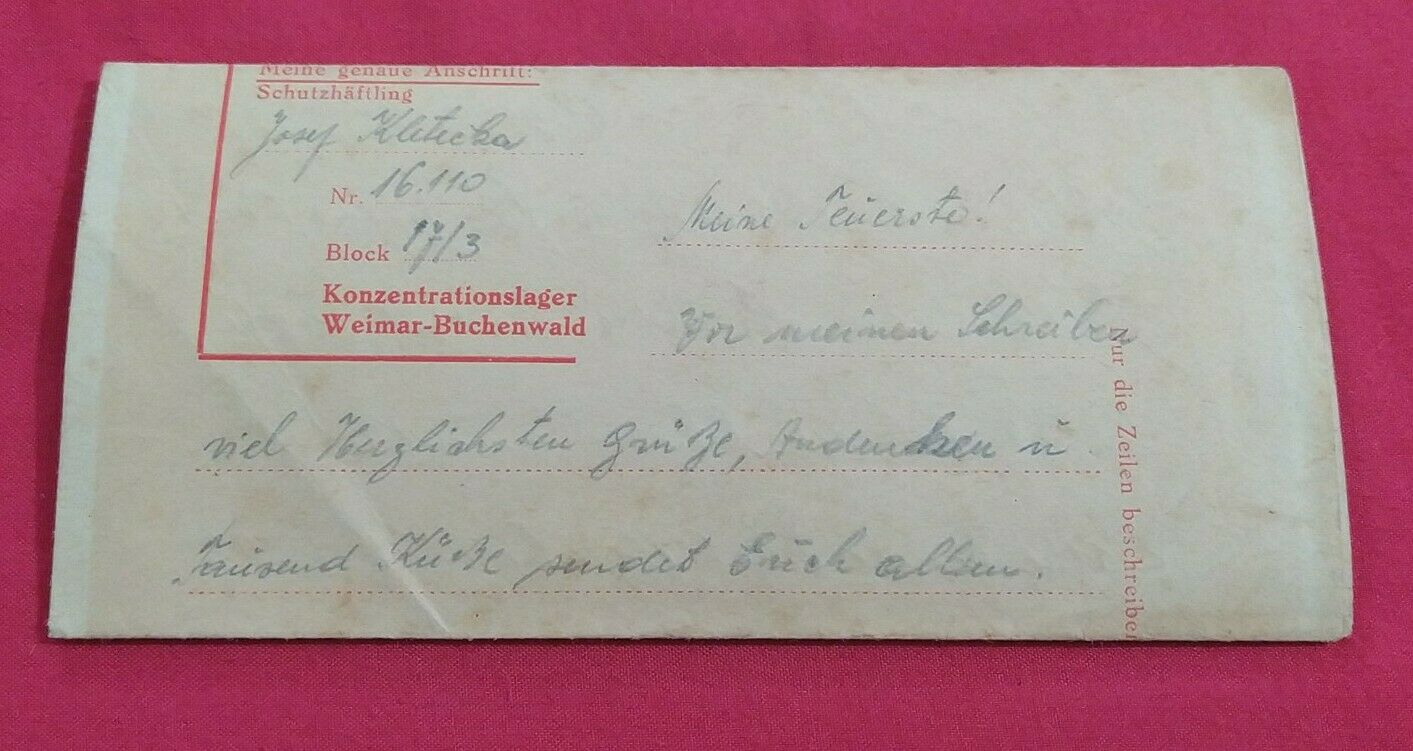 Meine genaue Anschrift:
Schutzhäftling
Josef Kletecka
Nr. 16.110
Block 17/3
Konzentrationslager
Weimar-Buchenwald
Meine Teuerste!
Vor meinen Schreiben
viel Herzlichsten Grüße, Andenken u
Tausend Küße sendet Euch allen.
Nur die Zeilen beschreiben